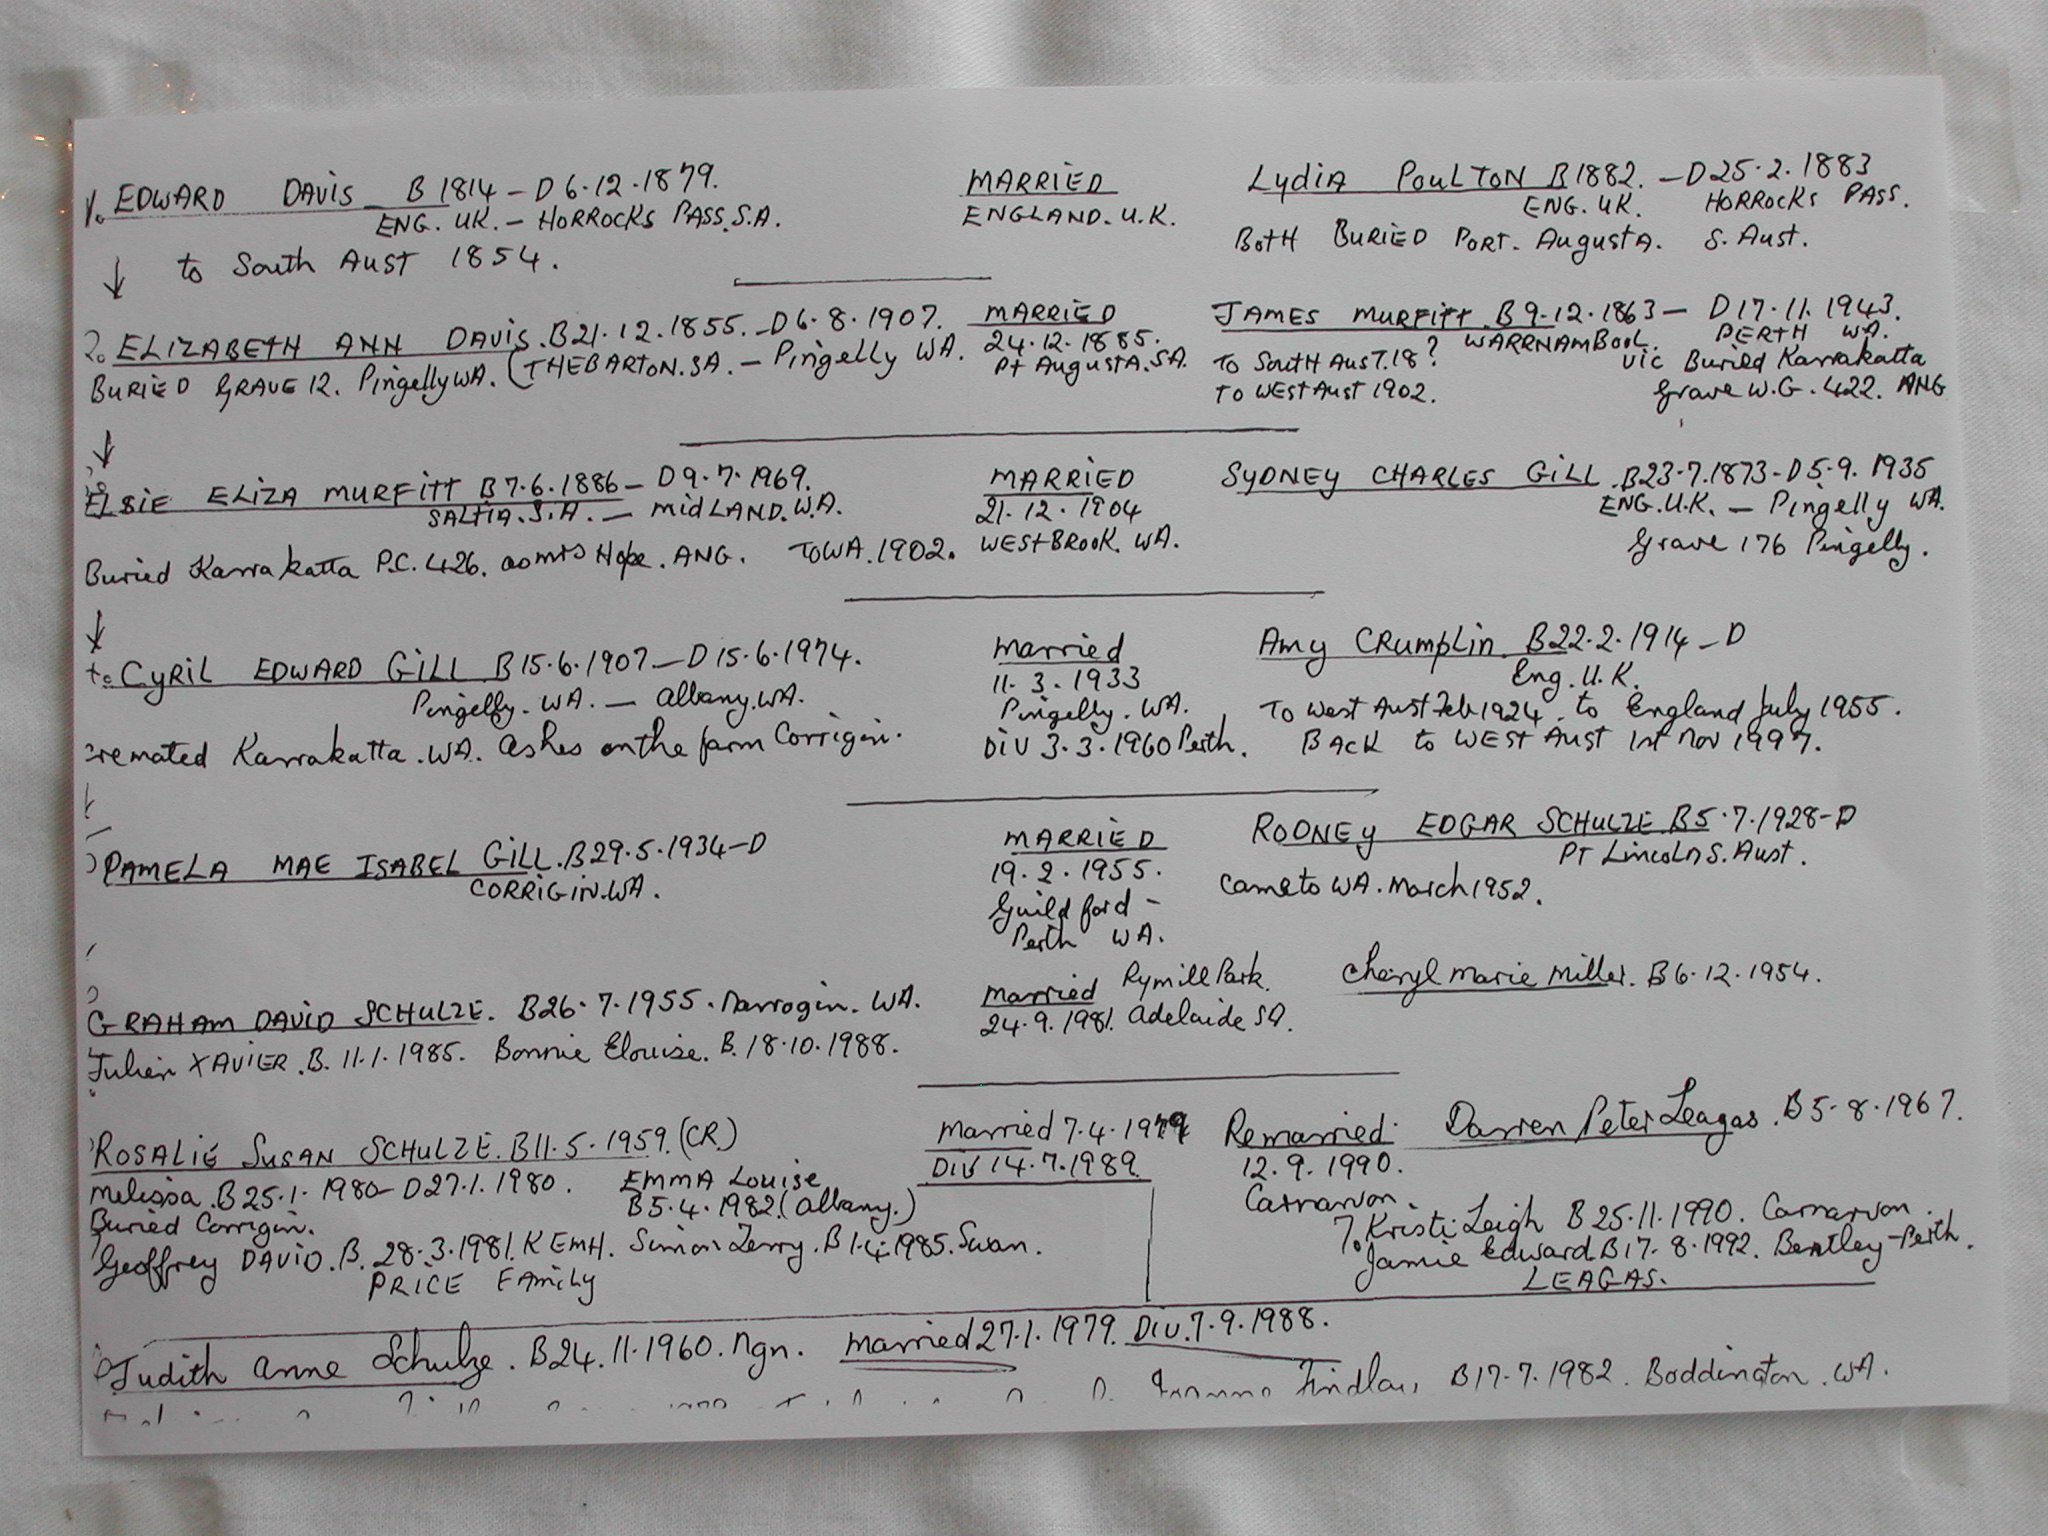 1. EDWARD DAVIS B 1814 – D 6.12.1879. MARRIED Lydia POULTON B 1882. – D 25.2.1883
ENG. UK. – HORROCKS PASS. S.A. ENGLAND. U.K. ENG. UK. HORROCKS PASS.
to South Aust 1854. Both BURIED PORT. AugustA. S. Aust.
2. ELIZABETH ANN DAVIS. B 21.12.1855. – D 6.8.1907. MARRIED JAMES MURFITT. B 9.12.1863 – D 17.11.1943.
(THEBARTON. SA. – Pingelly WA. 24.12.1885. WARRNAMBOOL. PERTH WA.
BURIED GRAVE 12. Pingelly WA. Pt AugustA. SA. To SOUTH AusT. 18? VIC Buried Karrakatta
To WEST Aust 1902. Grave W.G. 422. ANG
ELSIE ELIZA MURFITT B 7.6.1886 – D 9.7.1969. MARRIED SYDNEY CHARLES GILL. B 23.7.1873 – D 5.9.1935
SALTIA. S.A. – MIDLAND. W.A. 21.12.1904 ENG. U.K. – Pingelly WA.
Buried Karrakatta P.C. 426. as mrs Hope. ANG. To WA. 1902. WESTBROOK. WA. Grave 176 Pingelly.
CYRIL EDWARD GILL B 15.6.1907 – D 15.6.1974. Married Amy CRumplin. B 22.2.1914 – D
Pingelly. WA. – Albany. WA. 11.3.1933 Eng. U.K.
Pingelly. WA. To West Aust Feb 1924. to England July 1955.
remated Karrakatta. WA. Ashes on the farm Corrigin. DIV 3.3.1960 Perth. BACK to WEST AUST 1st Nov 1997.
PAMELA MAE ISABEL GILL. B 29.5.1934 – D MARRIED RODNEY EDGAR SCHULZE. B 5.7.1928 – D
CORRIGIN. WA. 19.2.1955. PT Lincoln S. Aust.
Guildford – Came to WA. March 1952.
Perth WA.
GRAHAM DAVID SCHULZE. B 26.7.1955. Narrogin. WA. Married Rymill Park. Cheryl Marie Miller. B 6.12.1954.
24.9.1981. Adelaide SA.
Julien XAVIER. B. 11.1.1985. Bonnie Elouise. B. 18.10.1988.
ROSALIE SUSAN SCHULZE. B 11.5.1959. (CR.) Married 7.4.1979 Remarried Darren Peter Leagas. B 5.8.1967.
DIV 14.7.1989. 12.9.1990.
Melissa. B 25.1.1980 – D 27.1.1980. EMMA Louise Carnarvon.
Buried Corrigin. B 5.4.1982 (Albany.) 7. Kristi-Leigh B 25.11.1990. Carnarvon.
Geoffrey DAVID. B. 28.3.1981. KEMH. Simon Terry. B 1.4.1985. Swan. Jamie Edward B 17.8.1992. Bentley–Perth.
PRICE Family LEAGAS.
Judith Anne Schulze. B 24.11.1960. Ngn. Married 27.1.1979. DIV. 7.9.1988.
Findlay B 17.7.1982. Boddington. WA.